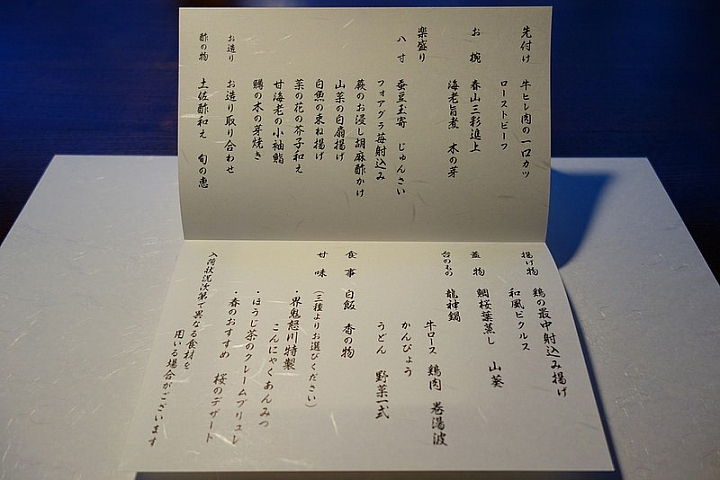 先付け 牛ヒレ肉の一口カツ
ローストビーフ
お椀 春山三彩進上
海老旨煮 木の芽
楽盛り
八寸 蚕豆玉寄 じゅんさい
フォアグラ苺射込み
蕨のお浸し胡麻酢かけ
山菜の白扇揚げ
白魚の束ね揚げ
菜の花の芥子和え
甘海老の小袖鮨
鱒の木の芽焼き
お造り お造り取り合わせ
酢の物 土佐酢和え 旬の恵
揚げ物 鶏の最中射込み揚げ
和風ピクルス
蓋物 鯛桜葉蒸し 山葵
台のもの 龍神鍋
牛ロース 鶏肉 巻湯波
かんぴょう
うどん 野菜一式
食事 白飯 香の物
甘味 (三種よりお選びください)
・界鬼怒川特製
こんにゃくあんみつ
・ほうじ茶のクレームブリュレ
・春のおすすめ 桜のデザート
入荷状況次第で異なる食材を
用いる場合がございます